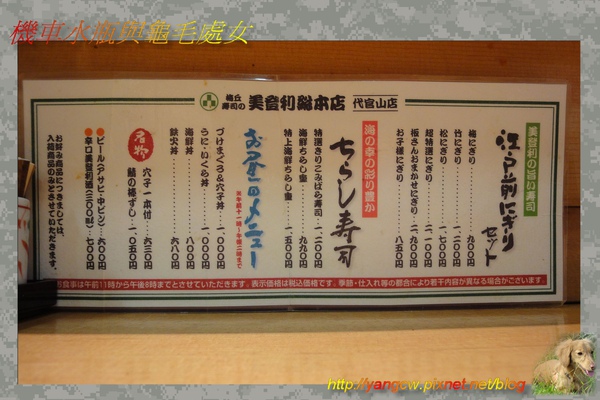 機車水瓶與龜毛處女
梅丘
寿司の
美登利総本店
代官山店
美登利の旨い寿司
江戸前にぎり
セット
梅にぎり 九〇〇円
竹にぎり 一、二〇〇円
松にぎり 一、七〇〇円
超特選にぎり 二、一〇〇円
板さんおまかせにぎり 二、九〇〇円
お子様にぎり 八五〇円
海の幸の彩り豊か
ちらし寿司
特選きりこみばら寿司 一、二〇〇円
海鮮ちらし重 九九〇円
特上海鮮ちらし重 一、五〇〇円
お昼のメニュー
※午前十一時〜午後三時まで
づけまぐろ&穴子丼 一、〇〇〇円
うに・いくら丼 一、〇〇〇円
海鮮丼 八〇〇円
鉄火丼 六八〇円
名物
穴子一本付 六三〇円
鯖の棒ずし 一、〇五〇円
●ビール(アサヒ・中ビン) 六〇〇円
●辛口美登利酒(三〇〇ml) 七〇〇円
お好み商品につきましては、
入荷商品のみとさせていただきます。
お食事は午前11時から午後9時までとさせていただきます。表示価格は税込価格です。季節・仕入れ等の都合により若干内容が異なる場合がございます。
http://yangcw.pixnet.net/blog